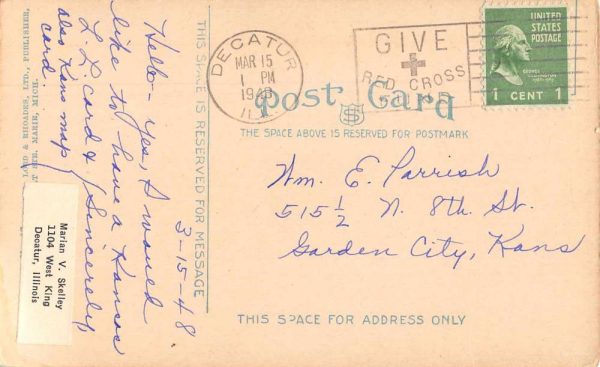 DECATUR
MAR 15
1 PM
1948
ILL.
GIVE
RED CROSS
UNITED
STATES
POSTAGE
GEORGE
WASHINGTON
1 CENT 1
Post Card
THE SPACE ABOVE IS RESERVED FOR POSTMARK
Wm. E. Parrish
515½ N. 8th St.
Garden City, Kans
THIS SPACE FOR ADDRESS ONLY
THIS SPACE IS RESERVED FOR MESSAGE
3-15-48
Hello - Yes, I would
like to have a Kansas
L. L. card & Sincerely,
also Kans map
card.
Marian V. Skelley
1104 West King
Decatur, Illinois